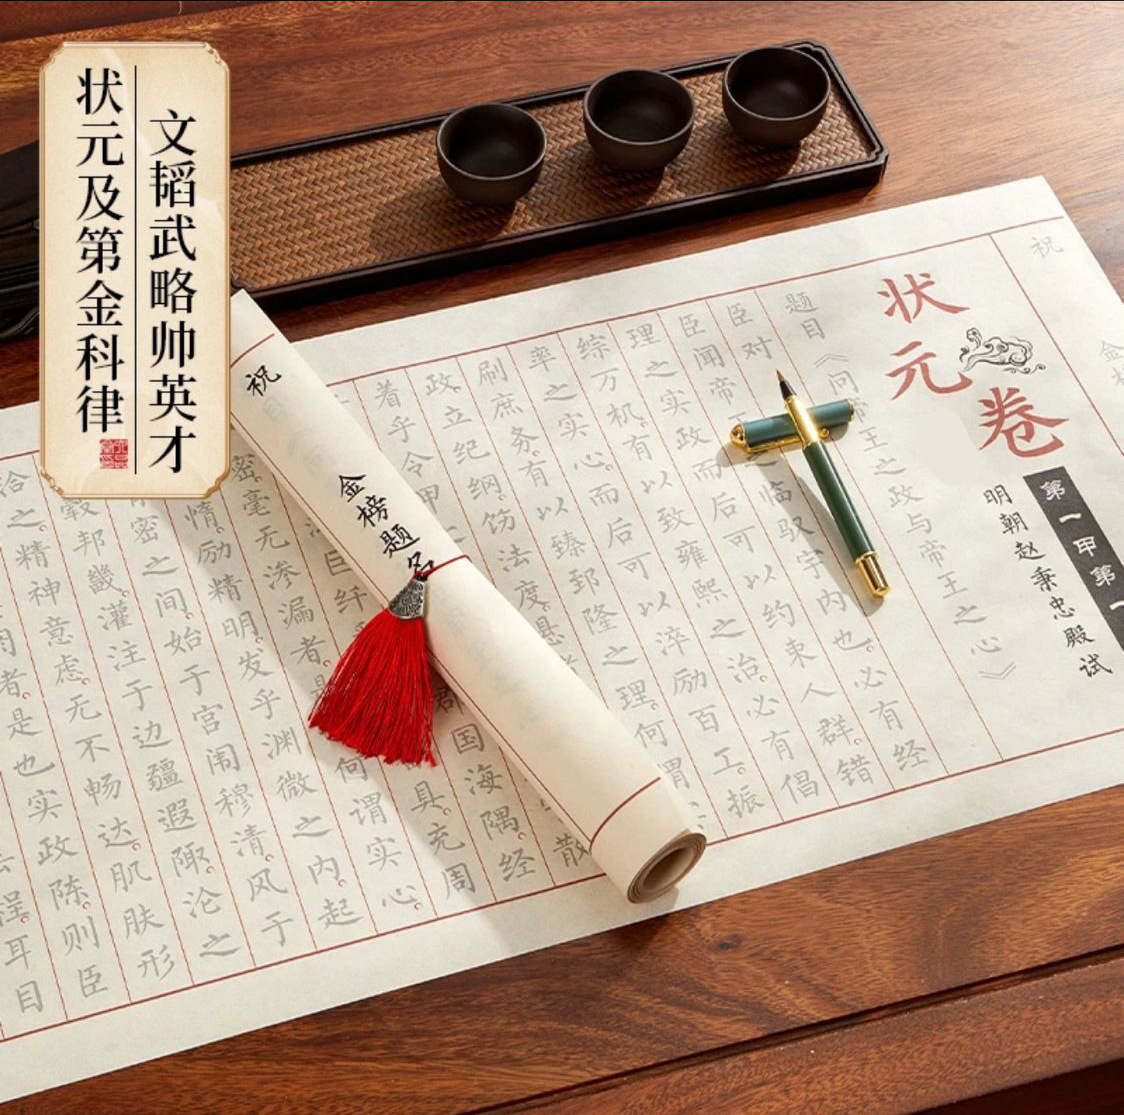 文韬武略帅英才
状元及第金科律
祝
状元卷
第一甲第一
明朝赵秉忠殿试
题目《问帝王之政与帝王之心》
臣对
臣闻帝王之临驭宇内也必有经
理之实政而后可以约束人群错
综万机有以致雍熙之治必有倡
率之实心而后可以淬励百工振
刷庶务有以臻郅隆之理何谓
政立纪纲饬法度悬
着乎令甲 散
群国海隅经
纤 具充周
密毫无渗漏者是 何谓实心
情励精明发乎渊微之内起
密之间始于宫闱穆清风于
毂邦畿灌注于边疆遐陬沦之
洽之精神意虑无不畅达肌肤形
者是也实政陈则臣
耳目
祝
金榜题名